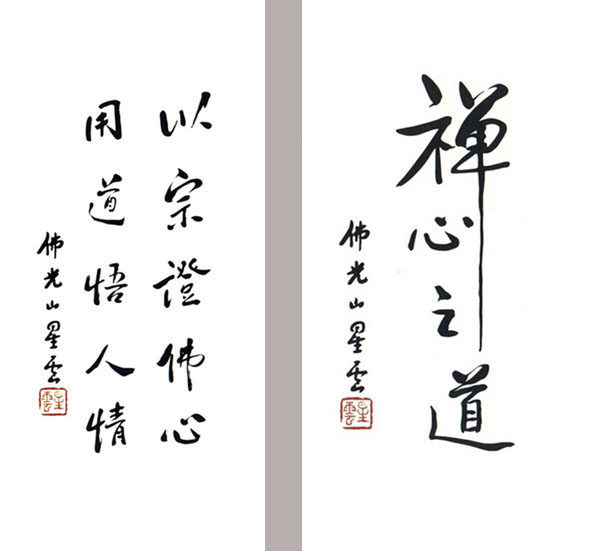 禅心之道
佛光山星雲
星雲
以宗證佛心
用道悟人情
佛光山星雲
星雲